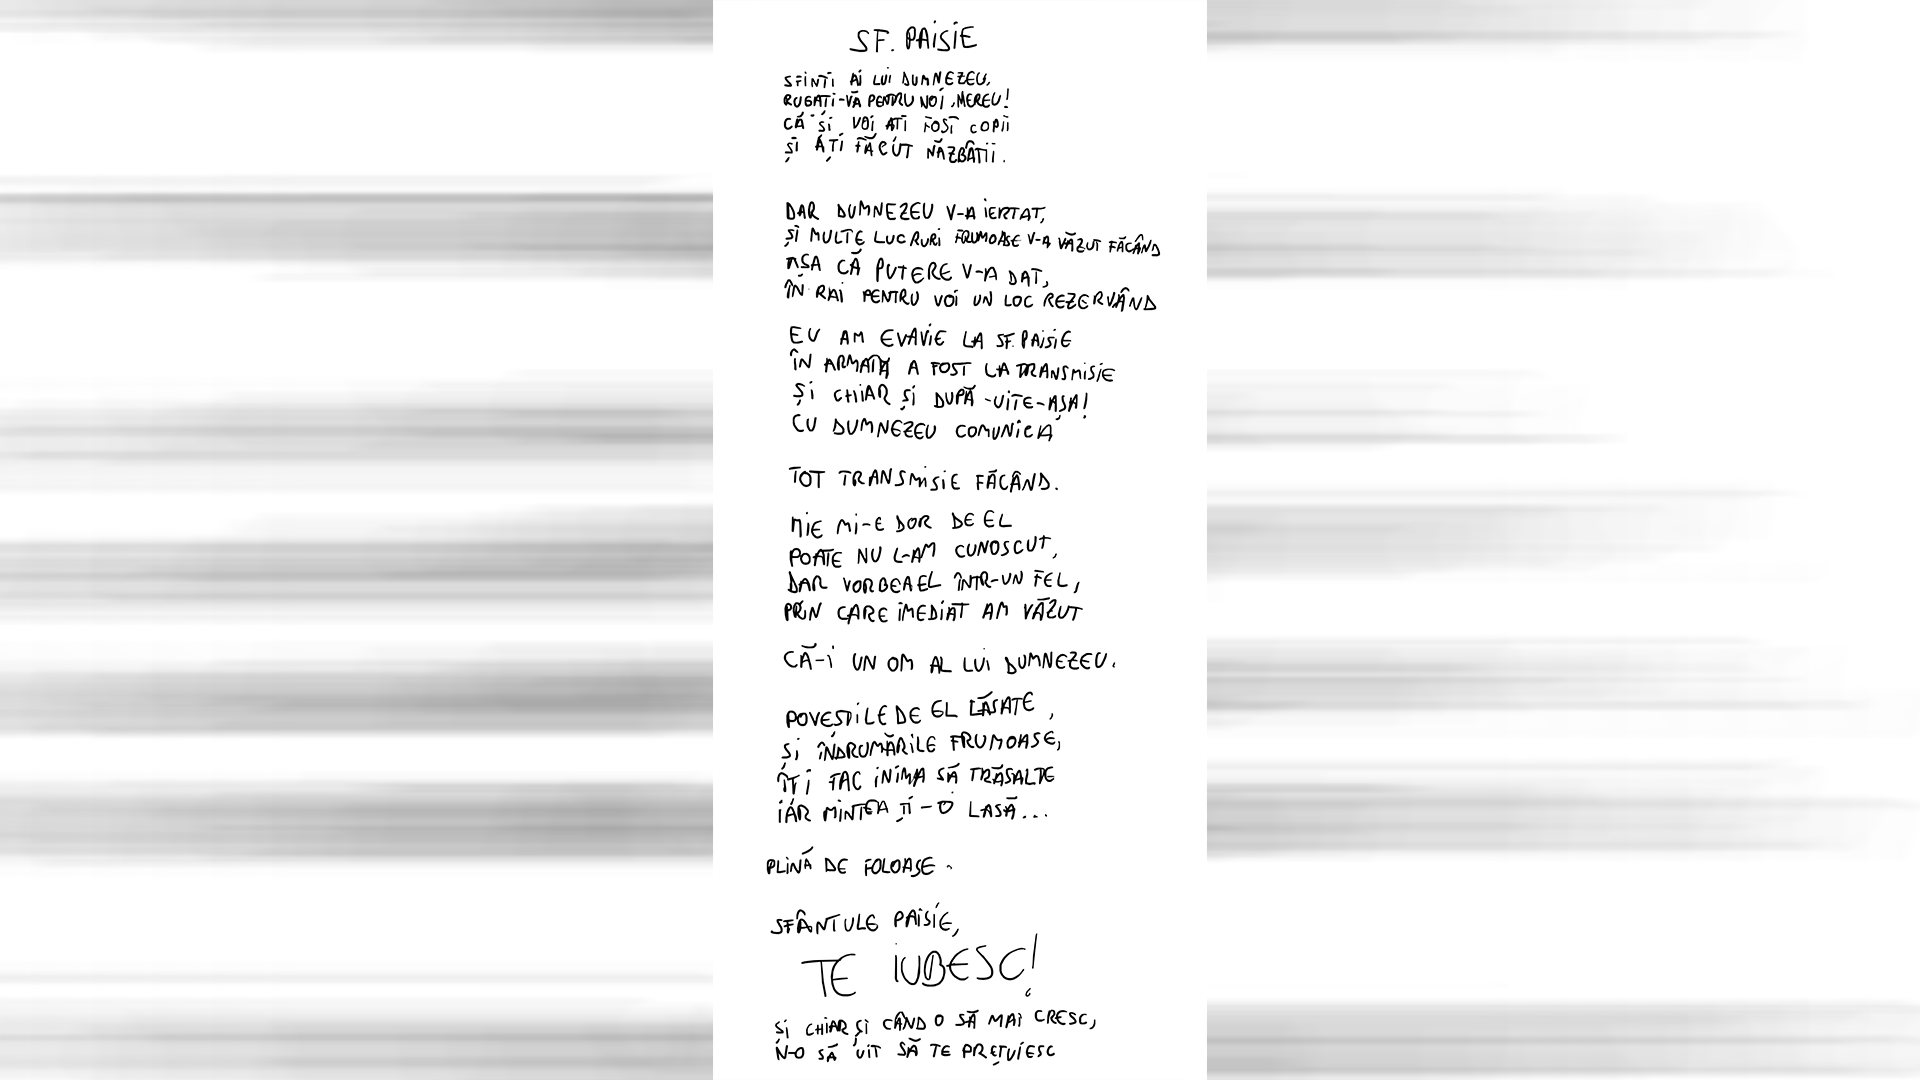 SF. PAISIE
SFINȚI AI LUI DUMNEZEU,
RUGAȚI-VĂ PENTRU NOI, MEREU!
CĂ ȘI VOI AȚI FOST COPII
ȘI AȚI FĂCUT NĂZBÂTII.
DAR DUMNEZEU V-A IERTAT,
ȘI MULTE LUCRURI FRUMOASE V-A VĂZUT FĂCÂND
AȘA CĂ PUTERE V-A DAT,
ÎN RAI PENTRU VOI UN LOC REZERVÂND
EU AM EVAVIE LA SF. PAISIE
ÎN ARMATĂ A FOST LA TRANSMISIE
ȘI CHIAR ȘI DUPĂ -UITE-AȘA!
CU DUMNEZEU COMUNICA
TOT TRANSMISIE FĂCÂND.
MIE MI-E DOR DE EL
POATE NU L-AM CUNOSCUT,
DAR VORBEA EL ÎNTR-UN FEL,
PRIN CARE IMEDIAT AM VĂZUT
CĂ-I UN OM AL LUI DUMNEZEU.
POVEȘTILE DE EL LĂSATE,
ȘI ÎNDRUMĂRILE FRUMOASE,
ÎȚI FAC INIMA SĂ TRĂSALTE
IAR MINTEA ȚI-O LASĂ...
PLINĂ DE FOLOASE.
SFÂNTULE PAISIE,
TE IUBESC!
ȘI CHIAR ȘI CÂND O SĂ MAI CRESC,
N-O SĂ UIT SĂ TE PREȚUIESC